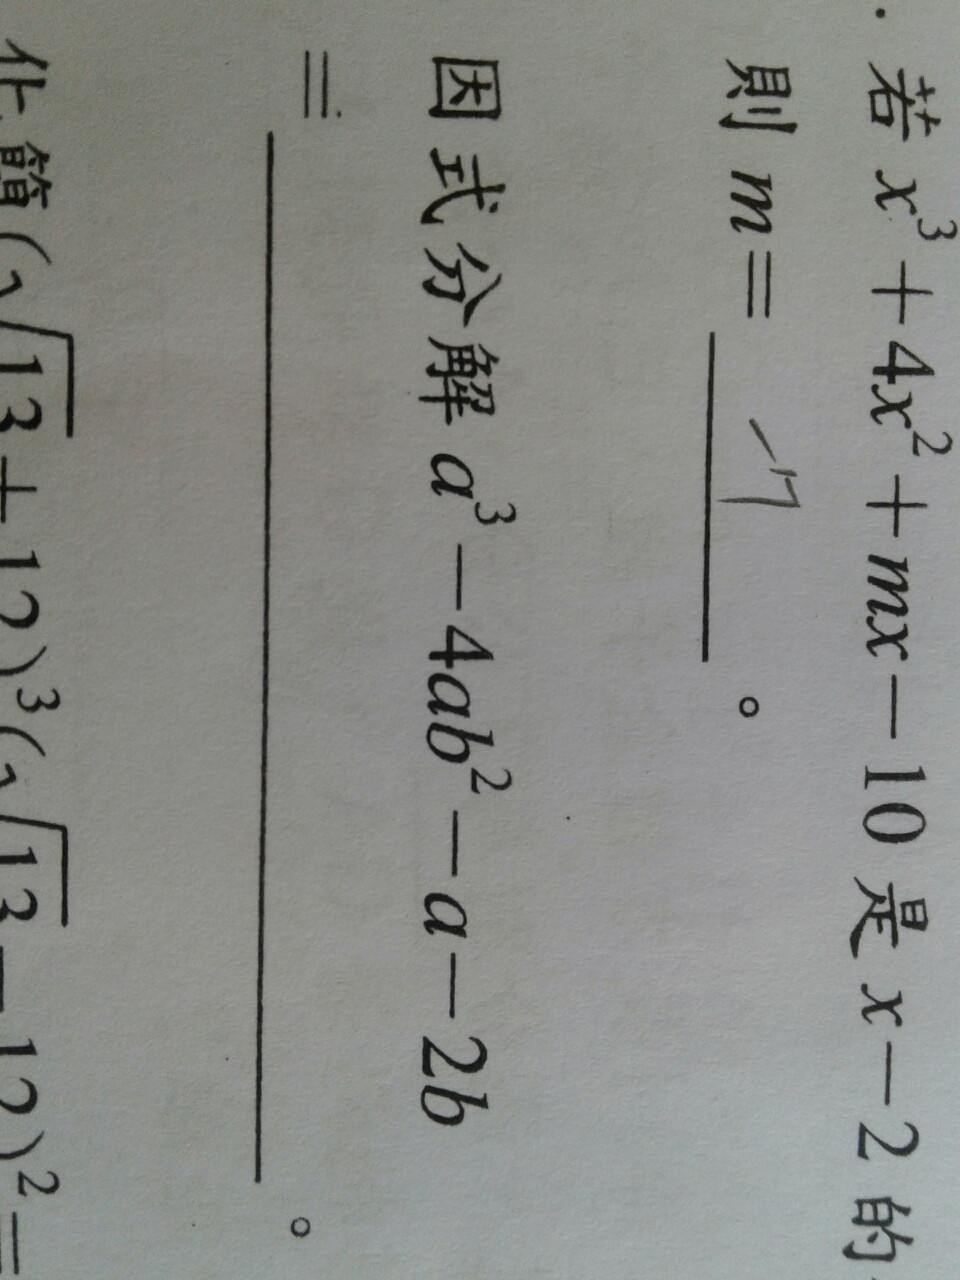 . 若 x³ + 4x² + mx − 10 是 x − 2 的
則 m = -7 。
因式分解 a³ − 4ab² − a − 2b
= 。
化簡 (√13 + 12)³ (√13 − 12)² =